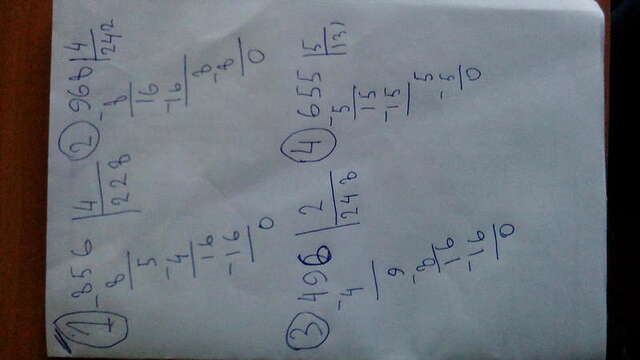 1 -856 | 4
8 228
5
-4
16
-16
0
2 -968 | 4
8 242
16
-16
8
-8
0
3 -496 | 2
4 248
9
-8
16
-16
0
4 -655 | 5
5 131
15
-15
5
-5
0